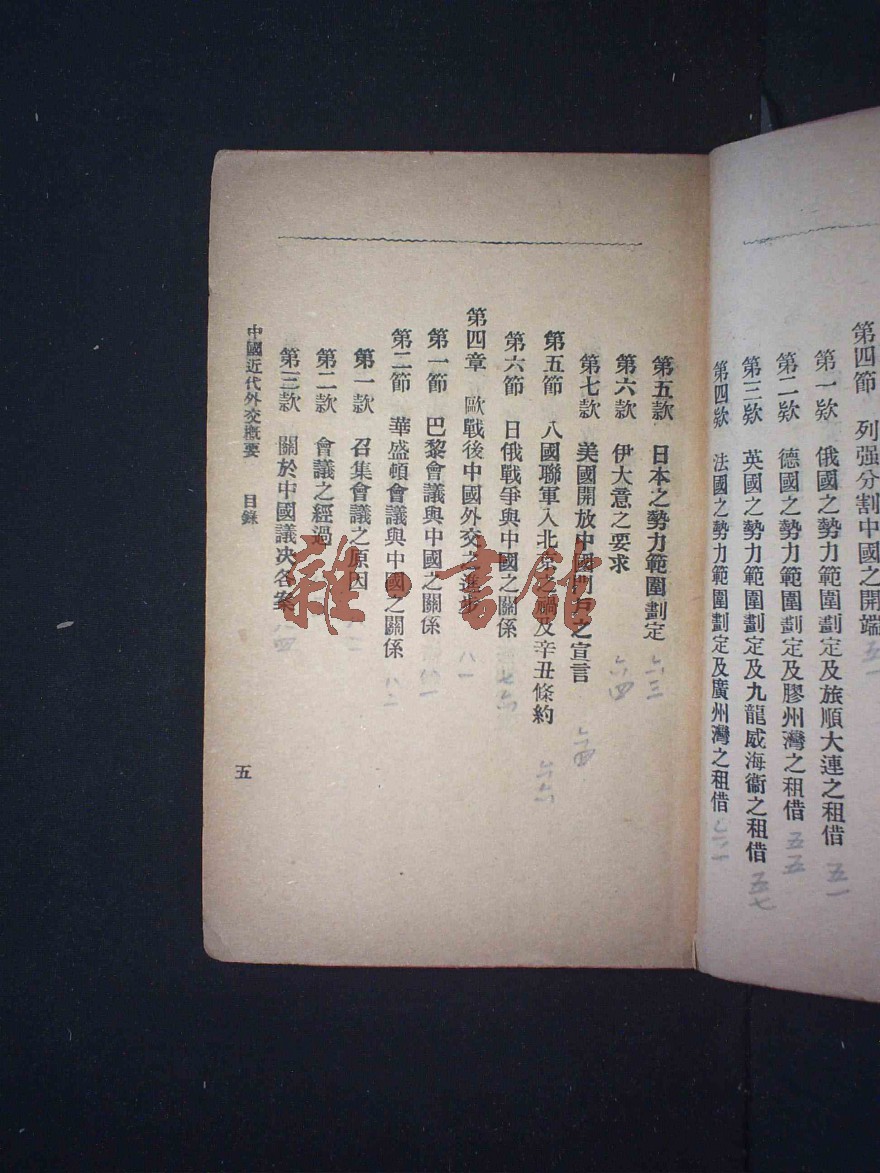 第四節　列强分割中國之開端 五一
第一欵　俄國之勢力範圍劃定及旅順大連之租借 五一
第二欵　德國之勢力範圍劃定及膠州灣之租借 五五
第三欵　英國之勢力範圍劃定及九龍威海衞之租借 五七
第四欵　法國之勢力範圍劃定及廣州灣之租借
第五欵　日本之勢力範圍劃定 六三
第六欵　伊大意之要求 六四
第七欵　美國開放中國門戶之宣言 六四
第五節　八國聯軍入北京之禍及辛丑條約 六六
第六節　日俄戰爭與中國之關係 七六
第四章　歐戰後中國外交之進步 八一
第一節　巴黎會議與中國之關係 八一
第二節　華盛頓會議與中國之關係 八二
第一欵　召集會議之原因
第二欵　會議之經過
第三欵　關於中國議決各案 八四
中國近代外交概要　目錄
五
雜·書館